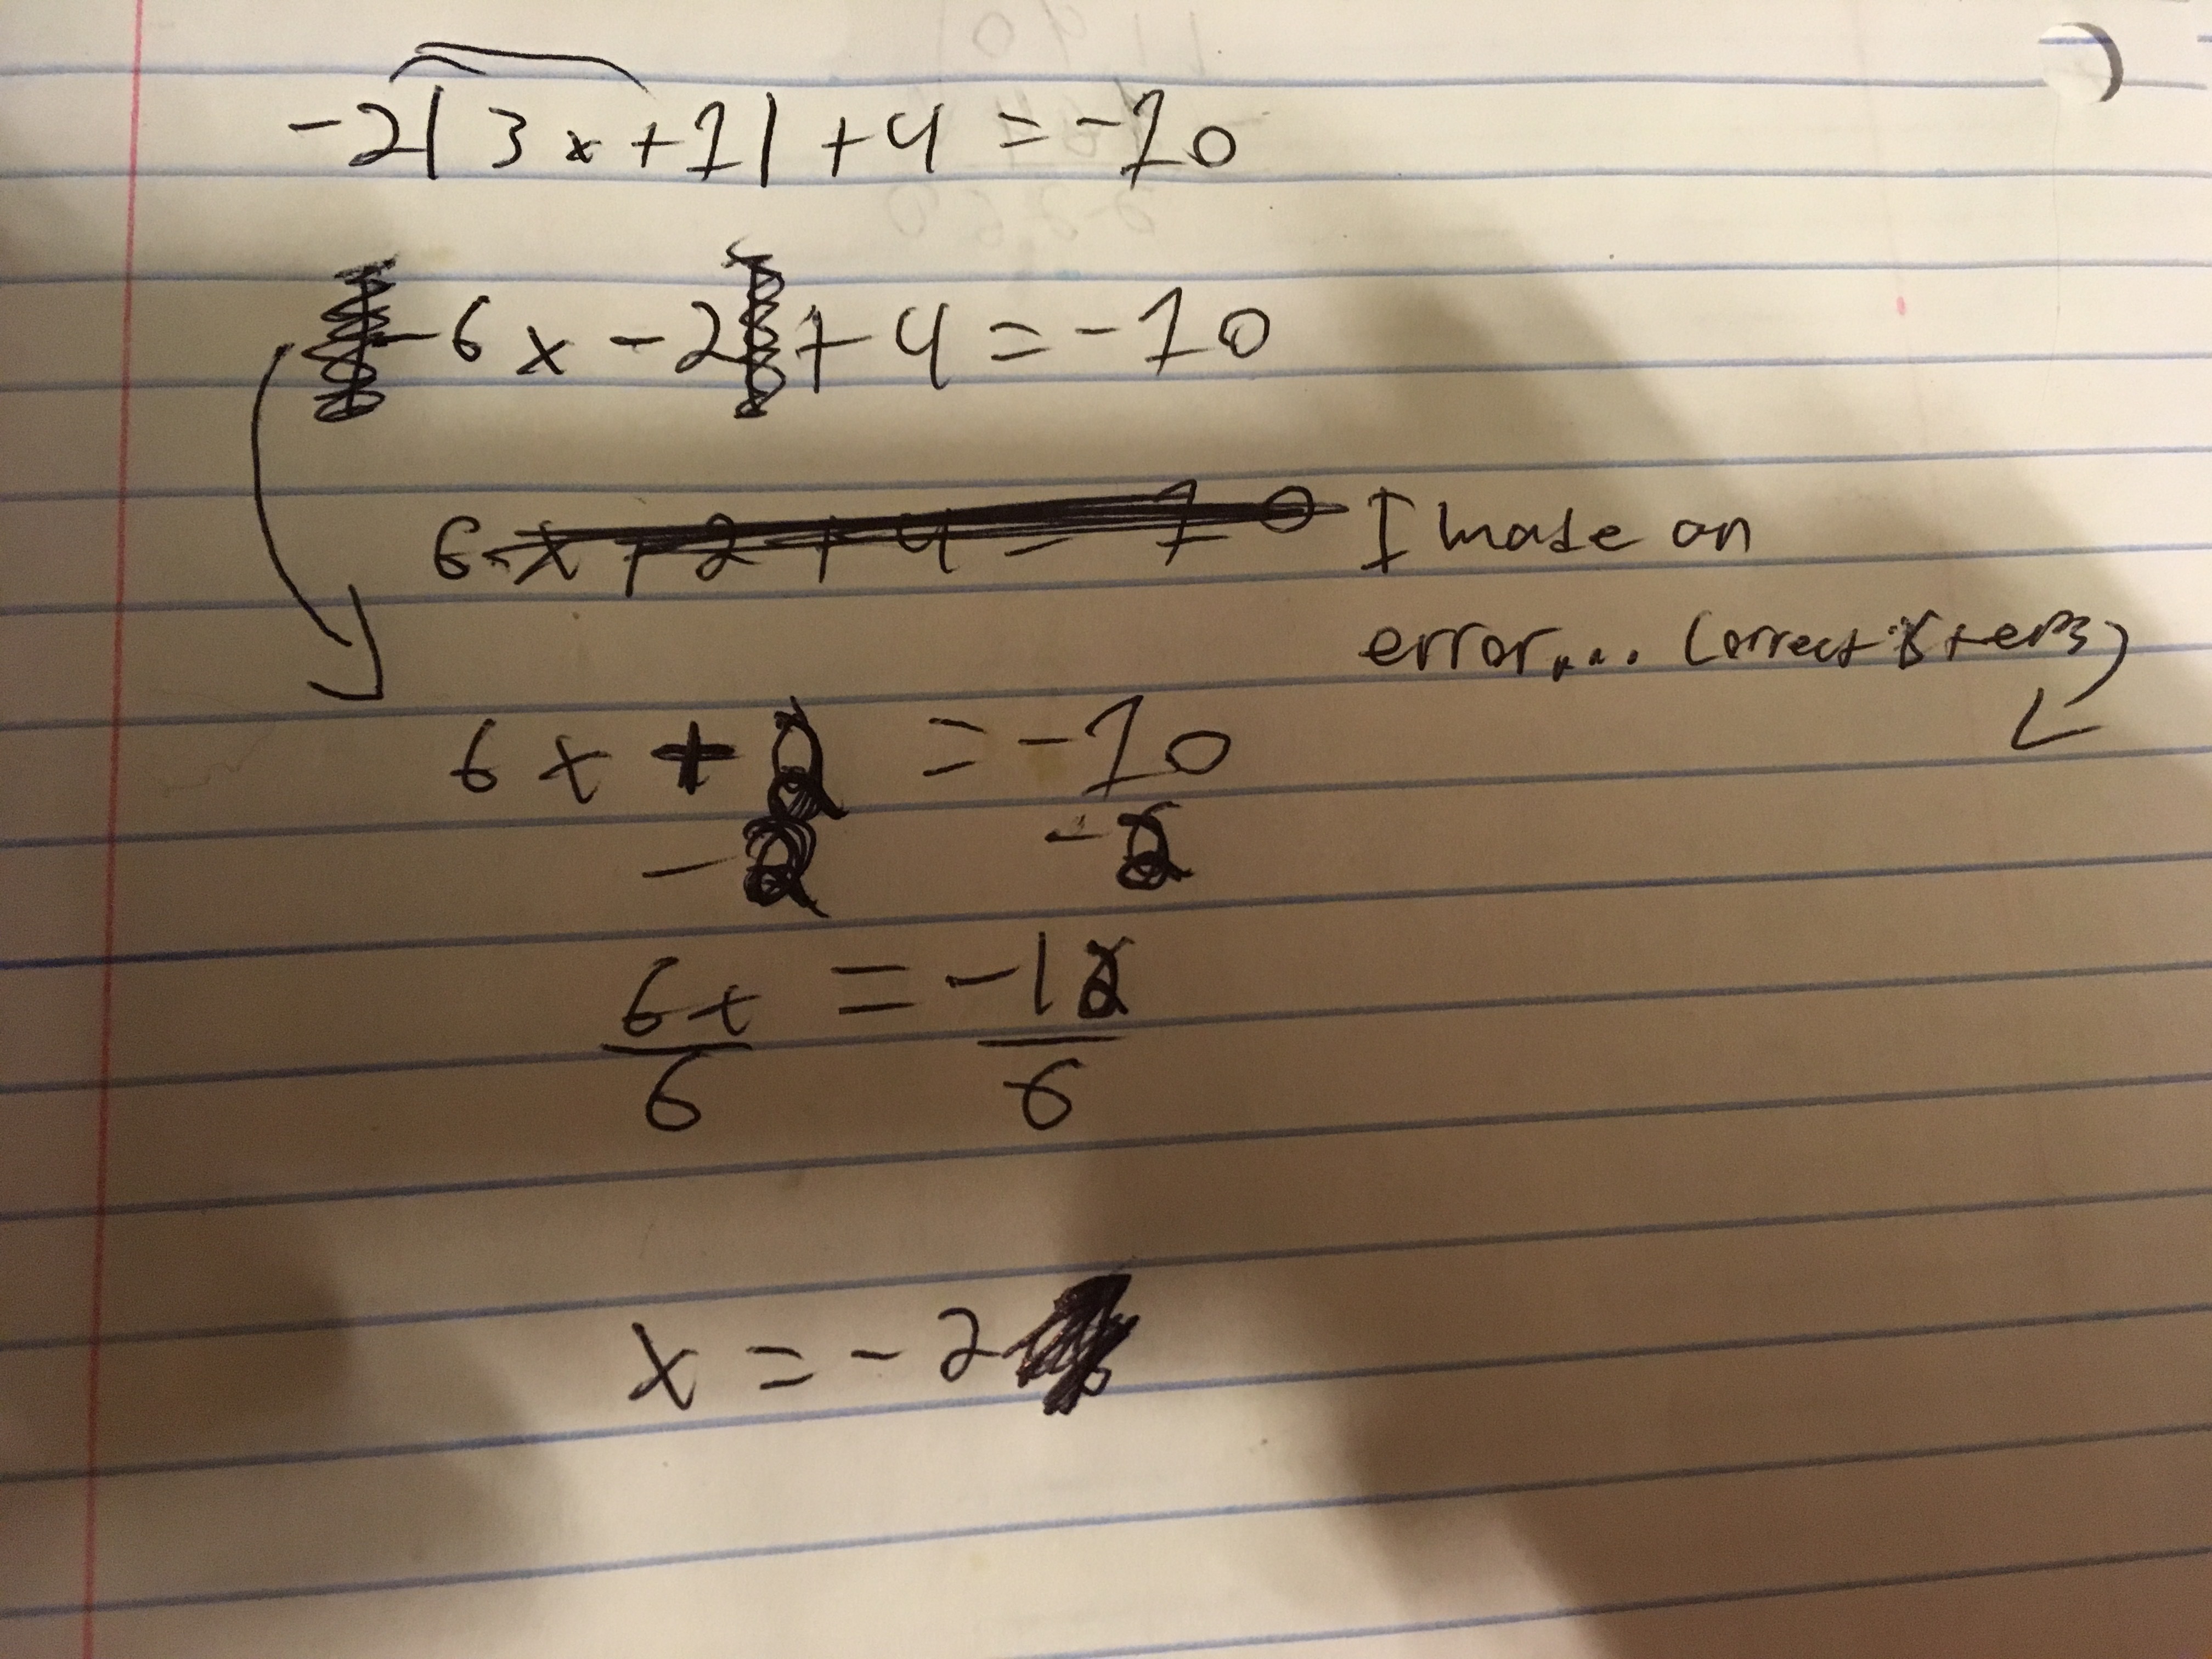 -2|3x+1|+4=-10
-6x-2+4=-10
6x+2+4=10 I made an
error.... Correct steps
6x+2=-10
-2 -2
6x=-12
6 6
x=-2